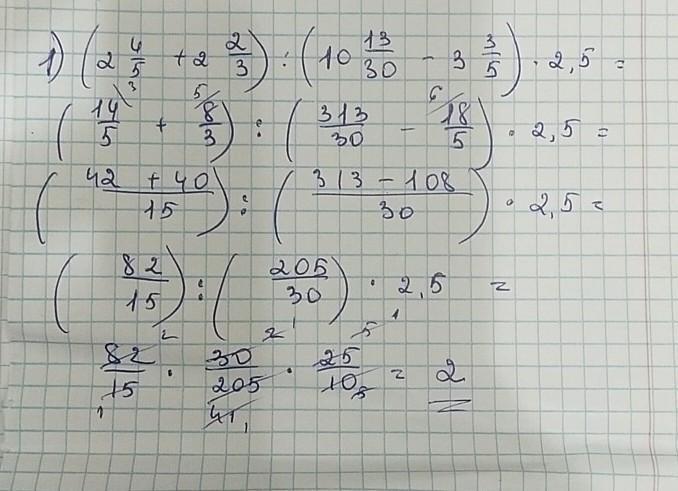 1) (2 4/5 + 2 2/3) : (10 13/30 - 3 3/5) · 2,5 =
(14/5 \3 + 5/ 8/3) : (313/30 - 6/ 18/5) · 2,5 =
((42 + 40)/15) : ((313 - 108)/30) · 2,5 =
(82/15) : (205/30) · 2,5 =
82/15 · 30/205 · 25/10 = 2